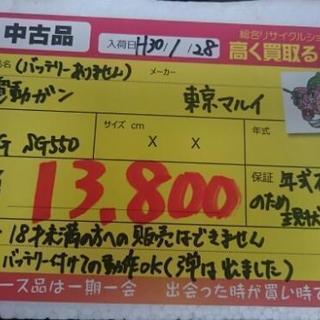 中古品 入荷日 H30/1/28
総合リサイクルショ
高く買取る
名 (バッテリーありません) メーカー
電動ガン 東京マルイ
サイズ cm 年式
G SG550 X X
13,800
保証 年式
のため
現状
18才未満の方への販売はできません
バッテリー付けての動作OK(弾は出ました)
ース品は一期一会 出会った時が買い時で